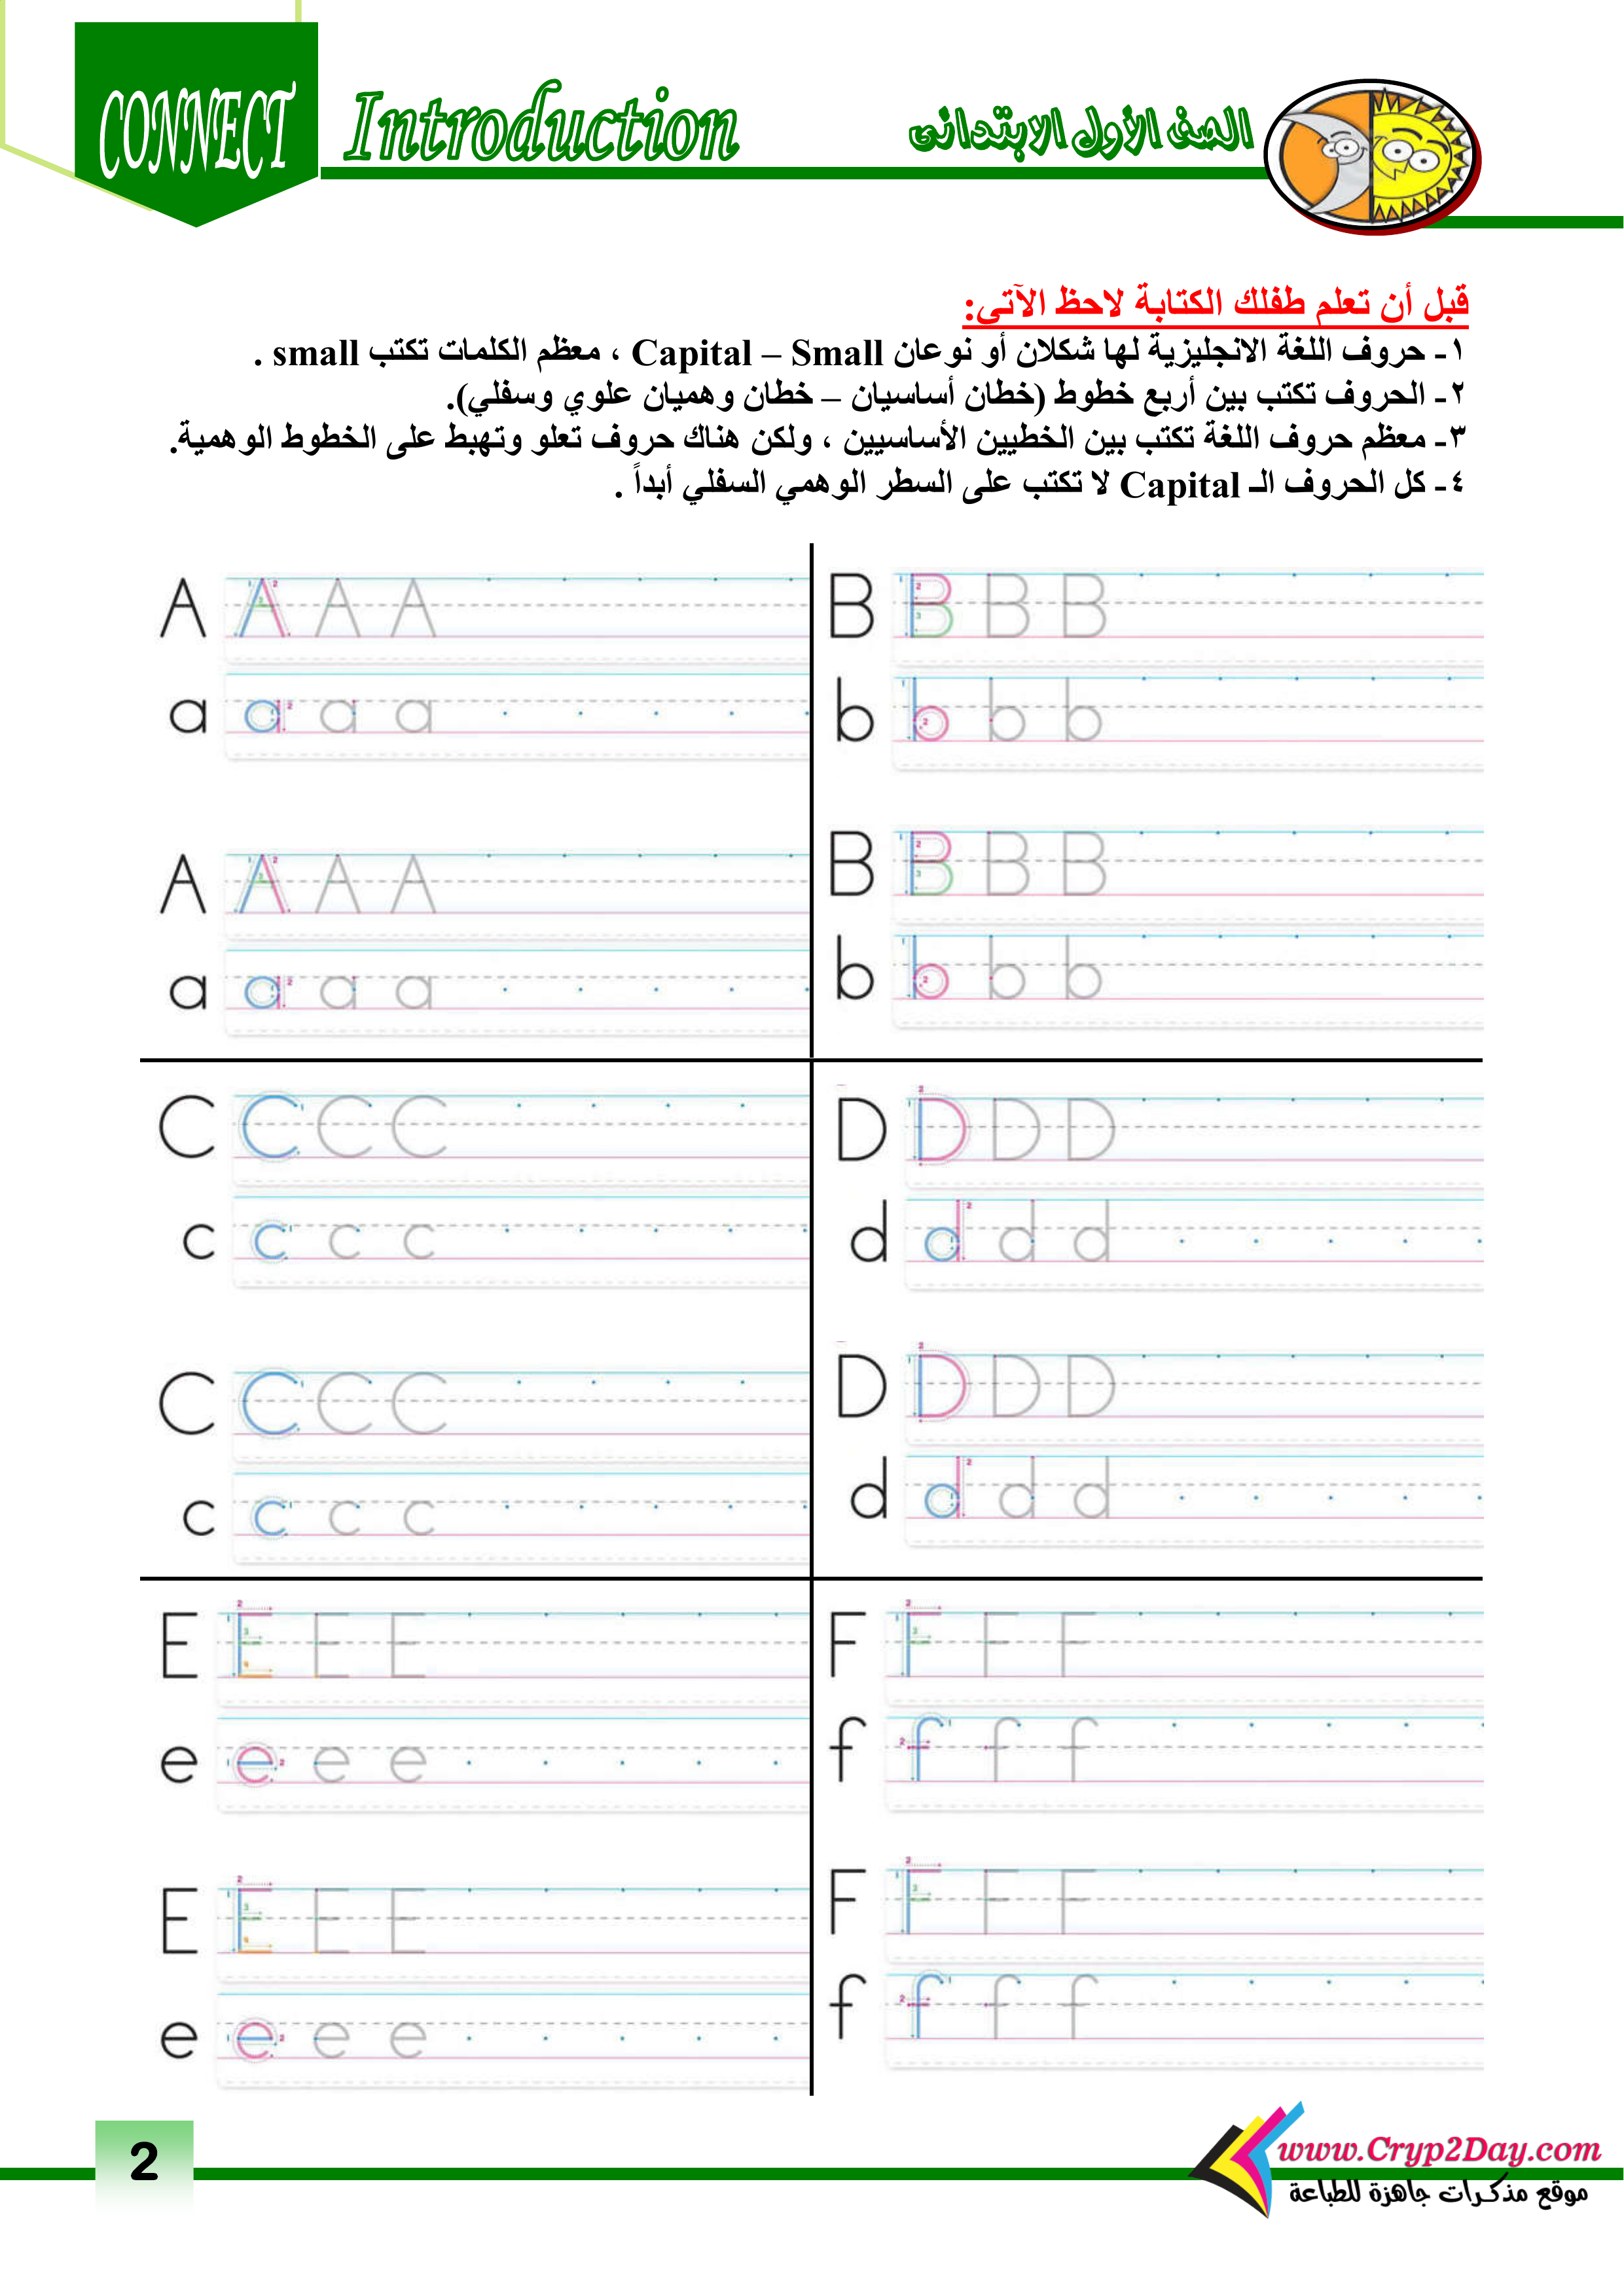 CONNECT
Introduction
الصف الأول الابتدائى
قبل أن تعلم طفلك الكتابة لاحظ الآتي:
١- حروف اللغة الانجليزية لها شكلان أو نوعان Capital – Small ، معظم الكلمات تكتب small .
٢- الحروف تكتب بين أربع خطوط (خطان أساسيان – خطان وهميان علوي وسفلي).
٣- معظم حروف اللغة تكتب بين الخطيين الأساسيين ، ولكن هناك حروف تعلو وتهبط على الخطوط الوهمية.
٤- كل الحروف الـ Capital لا تكتب على السطر الوهمي السفلي أبداً .
A A A A
a a a a
A A A A
a a a a
B B B B
b b b b
B B B B
b b b b
C C C C
c c c c
C C C C
c c c c
D D D D
d d d d
D D D D
d d d d
E E E E
e e e e
E E E E
e e e e
F F F F
f f f f
F F F F
f f f f
2
www.Cryp2Day.com
موقع مذكرات جاهزة للطباعة